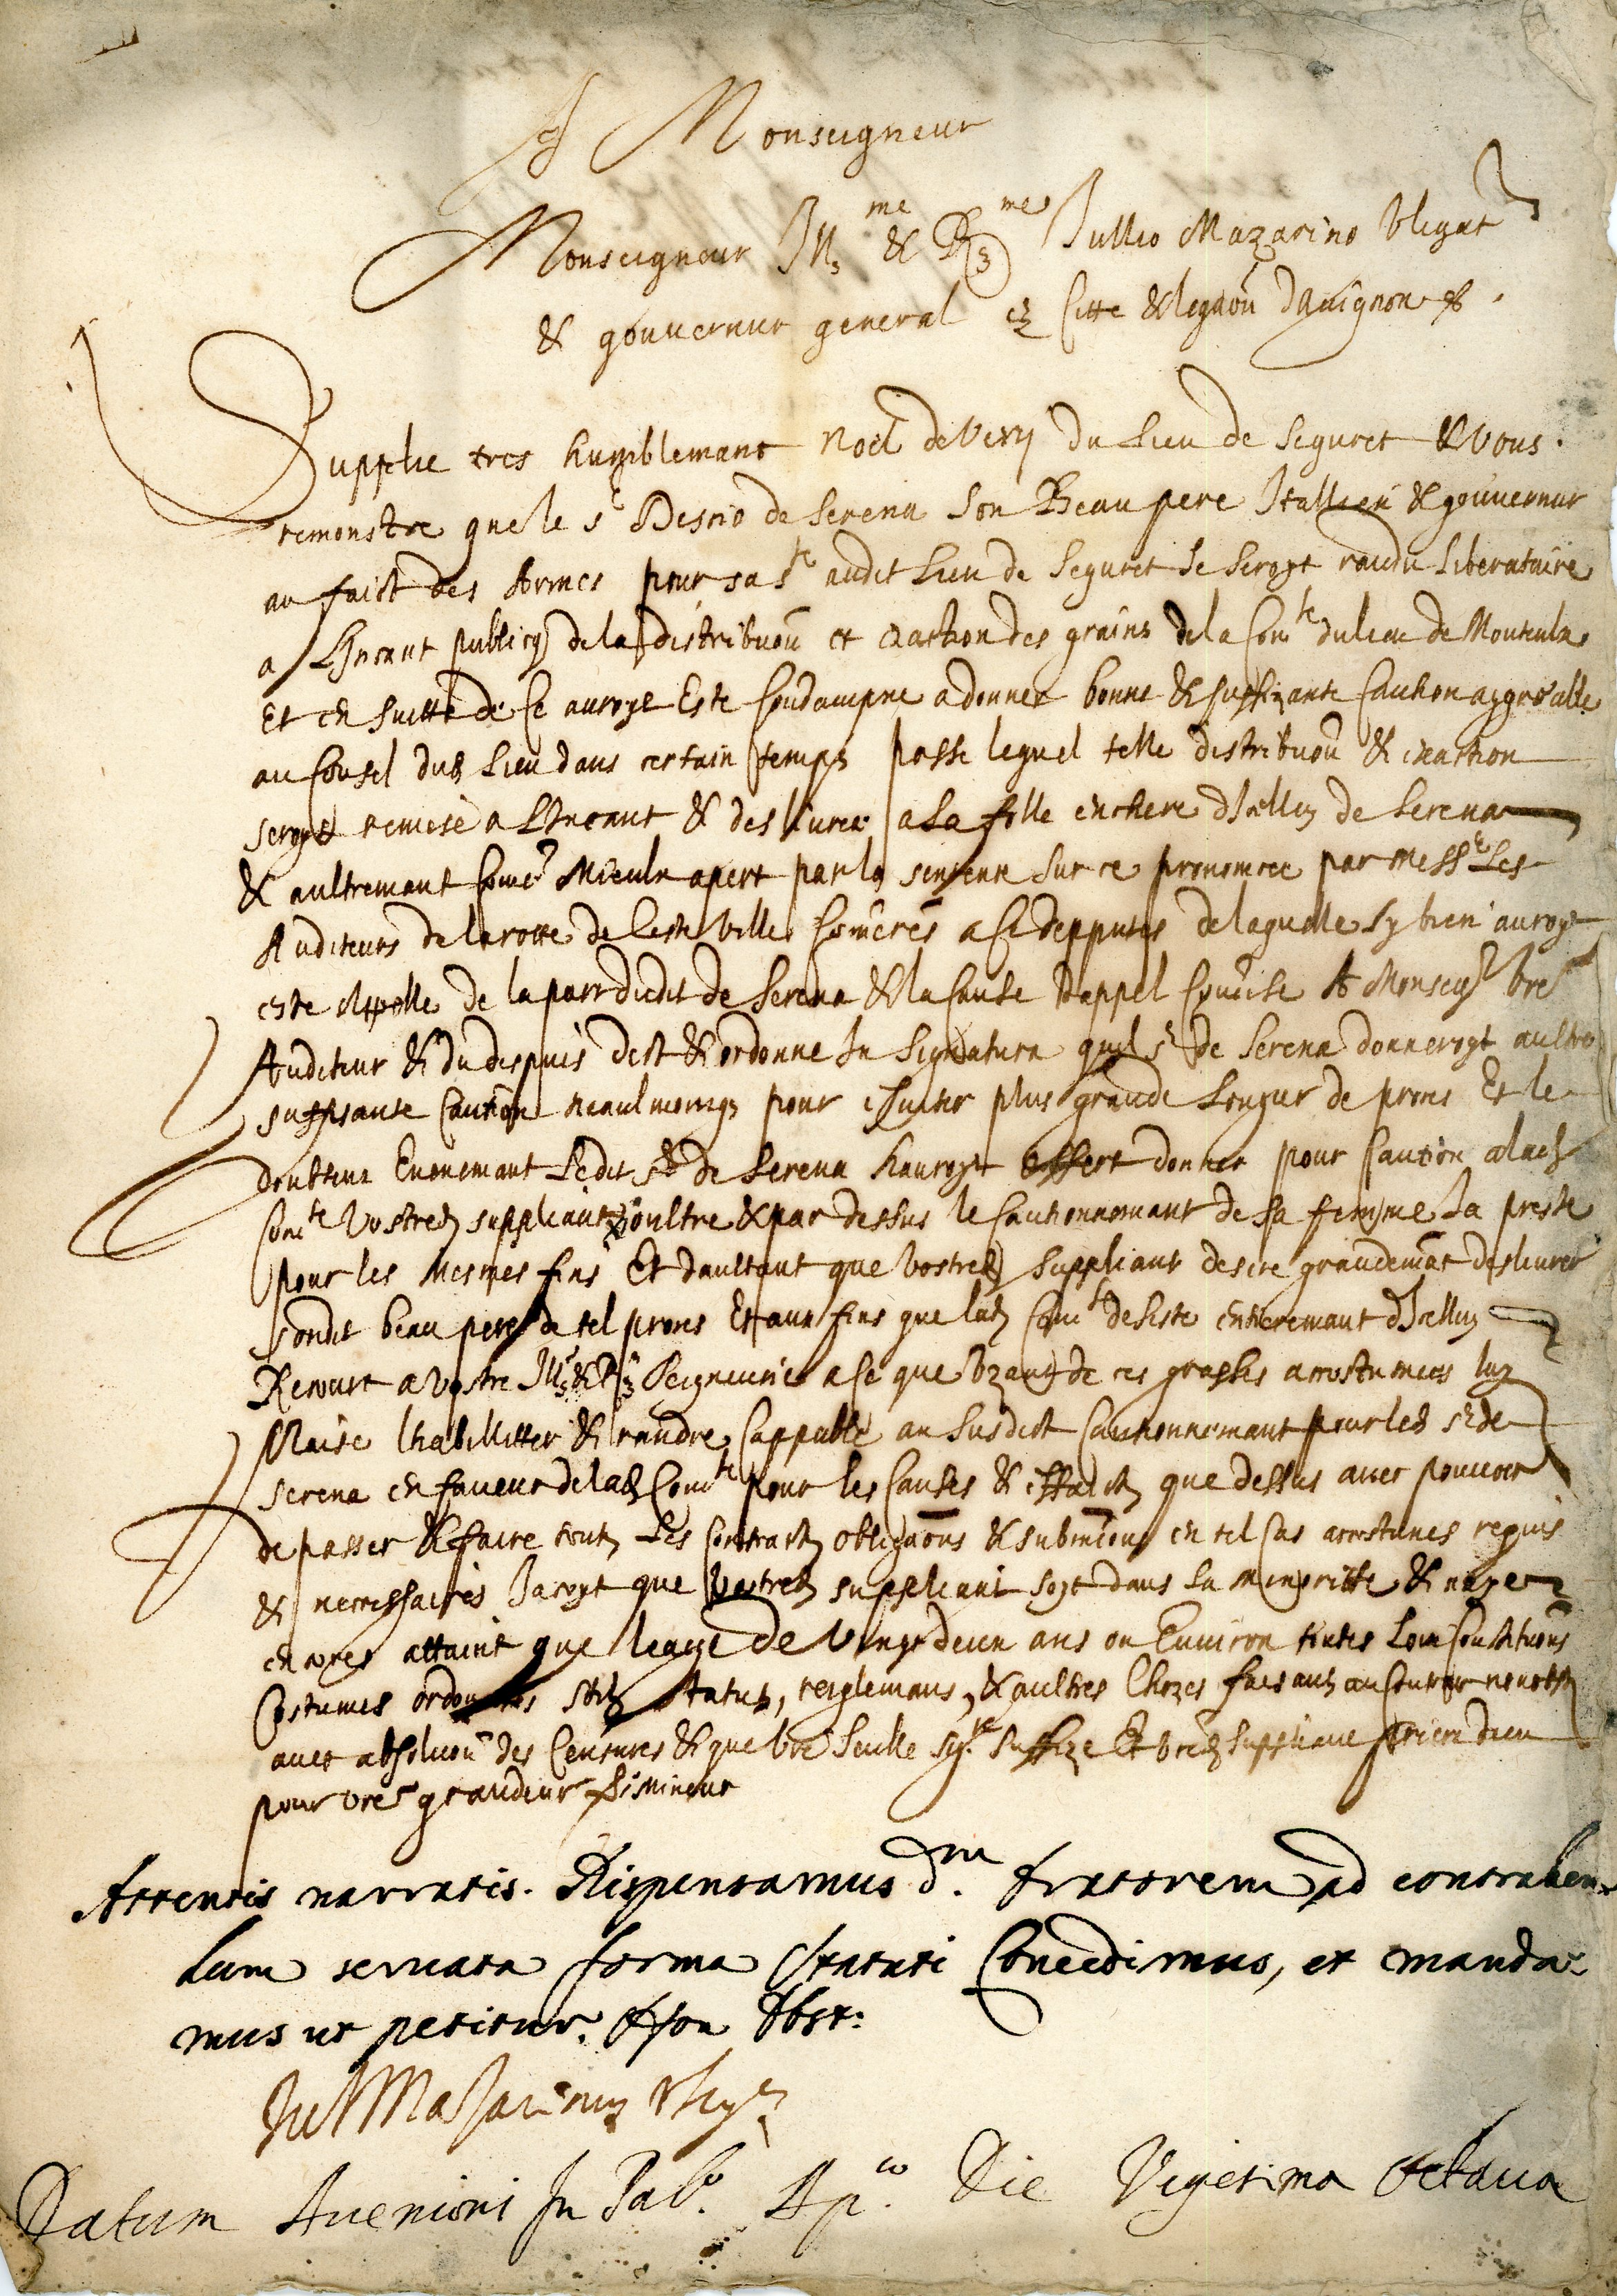 A Monseigneur
Monseigneur Ill.me & R.me Jullio Mazarino Vlegat
& gouverneur general en Citte & legaõn davignon &.
Supplie tres humblemant Noel de Very du Lieu de Seguret & vous
remonstre que le sr Descio de Serena Son Beau pere Itallien & gouvernur
au faict des Armes pour sa Ste audit Lieu de Seguret se seroyt randu liberataire
a LIncant publicq dela distribuõn et exaction des grains dela Comte du lieu de
Et en suitte de Ce auroyt Este Condampne a donner bonne & suffizante Caution aggreable
au Consel dud Lieu dans certain temps passe lequel telle distribuõn & exaction
seroyt remise a LIncant & deslivree a la folle enchere dIcelluy de Serena
& aultremant Come Mieulx apert par la sentence sur ce prononcee par Messrs Les
Auditeurs de la rotte de Ceste Ville Comeres a Ce depputes de laquelle sy bien auroyt
este Appelle de la part dudit de Serena & la Cause dappel Comise A Monseigr vre
Auditeur & du despuis dict & ordonne In Signatura quyl sr de Serena donneroyt aultre
suffisante Caution neaulmoings pour esviter plus grande Longur de proces Et le
doubteux Evenemant Ledit sr de Serena hauroyt offert donner pour Caution a lad
Comte Vostred suppliant oultre & par dessus le Cautionnemant de sa femme Ja preste
pour les Mesmes fins Et daultant que Vostred suppliant desire grandemãt deslivrer
sondit beau pere de tel proces Et aux fins que lad Comte desiste entieremant dIcelluy
Recourt a Vostre Ill & R Seigneurie a Ce que Vzant de ces grasses accostumees luy
Plaise lhabillitter & randre Cappable au susdict Cautionnemant pour led sr de
Serena en faveur de lad Comte pour les Causes & effaicts que dessus avec pouvoir
de passer & faire touts Les Contracts obligaõns & submions en tel Cas accostumes requis
& necessaires Jacoyt que Vostred suppliant soyt dans sa minoritte & naye
encores attaint que leage de Vingt deux ans ou Environ toutes Loix Constituõns
Costumes ordonnances stils statuts, reiglemans, & aultres Chozes faisants au Contraire nonobst
avec absoluõn des Censures & que vre seulle sigre suffize Et vred suppliant priera dieu
pour vre grandeur
Attentis narratis. Dispensamus d.m Oratorem ad contrahen-
dum servata forma statuti Concedimus, et manda-
mus ut petitur. Non Obst:
Jul Mazarinus Vleg.s
Datum Avenioni In Pal.o Ap.co Die Vigesima Octava